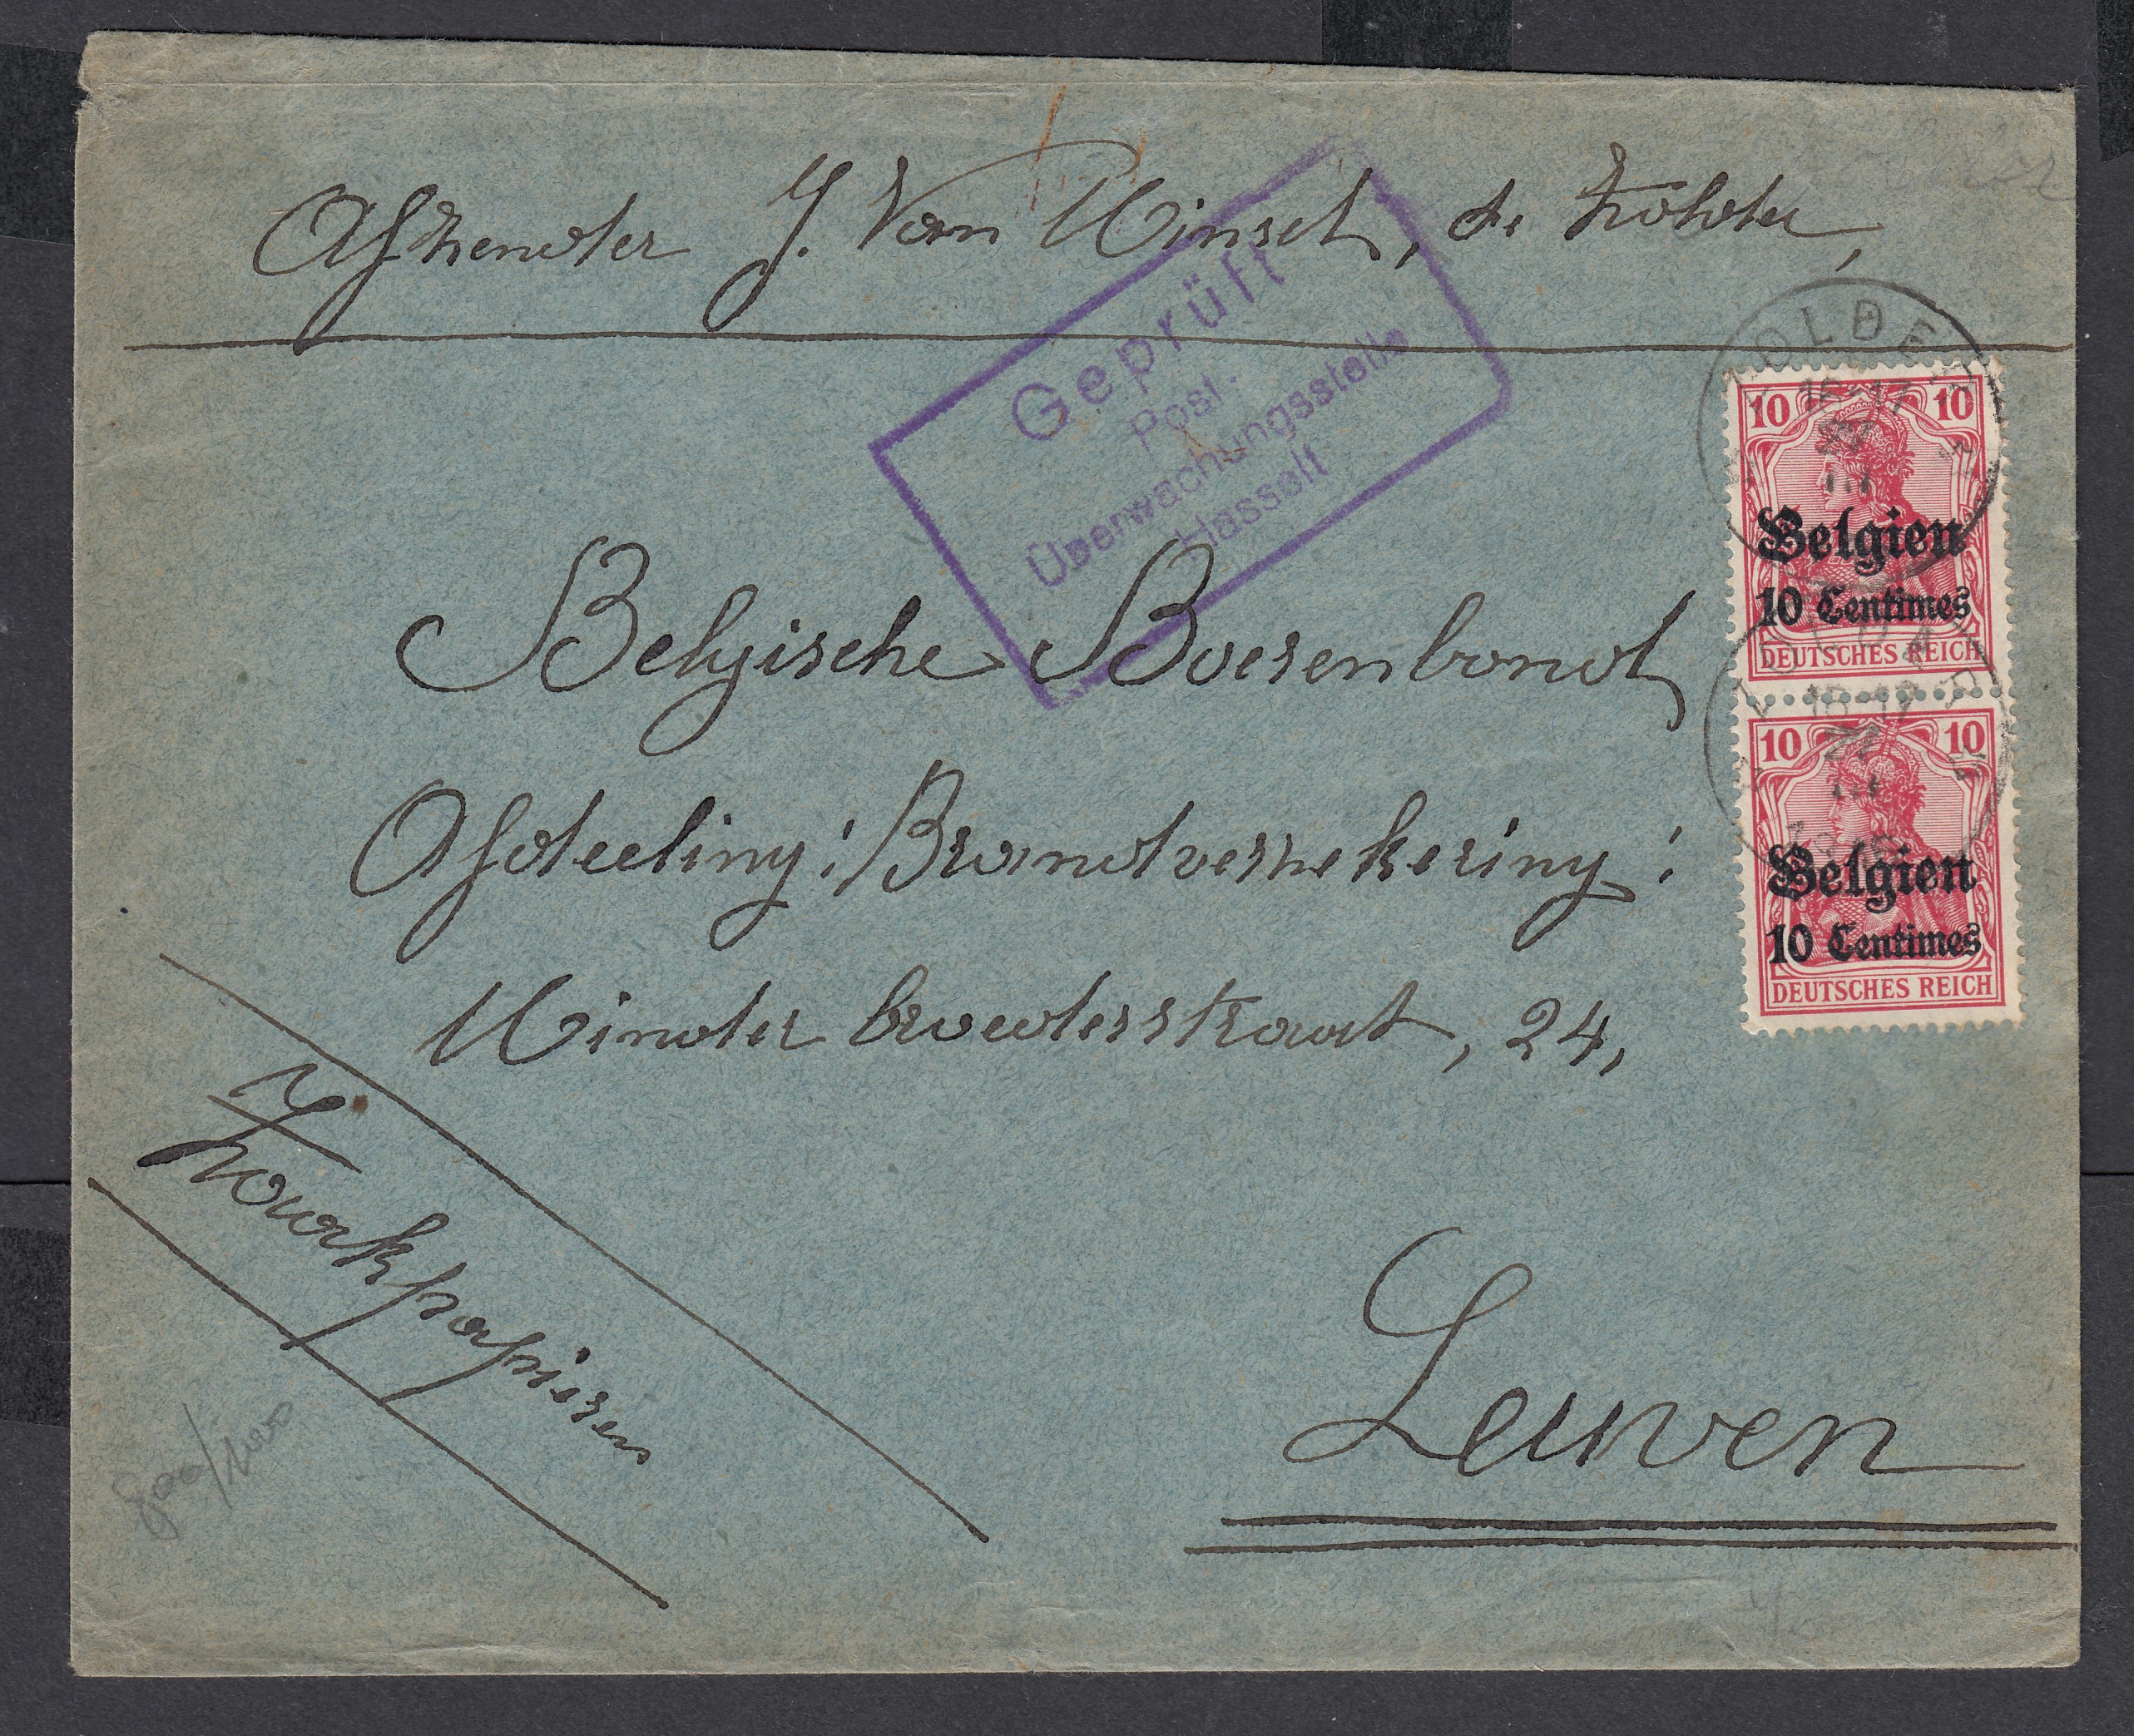 Afzender J. Van Winsel, te Zolder,
Geprüft
Post-
Überwachungsstelle
Hasselt
OLDE
16-17
10 10
Belgien
10 Centimes
DEUTSCHES REICH
10 10
Belgien
10 Centimes
DEUTSCHES REICH
Belgische Boerenbond
Afdeeling: Brandverzekering:
Minderbroederstraat, 24,
Zaakpapieren
Leuven